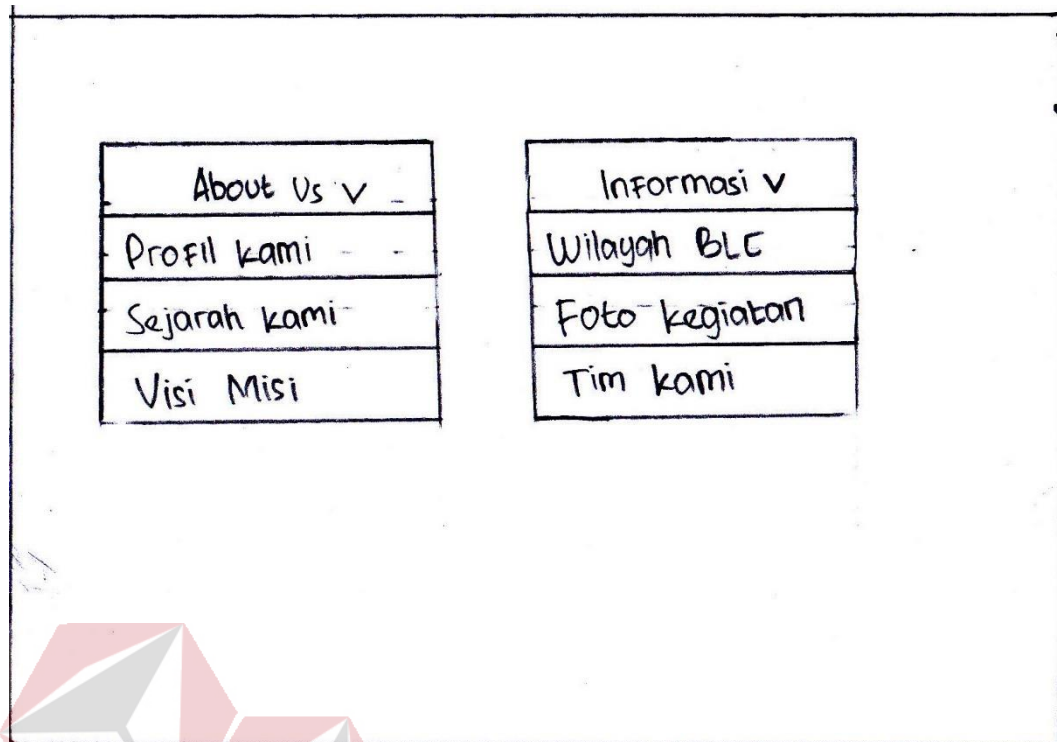 About Us V
Profil kami
Sejarah kami
Visi Misi
Informasi V
Wilayah BLC
Foto kegiatan
Tim kami